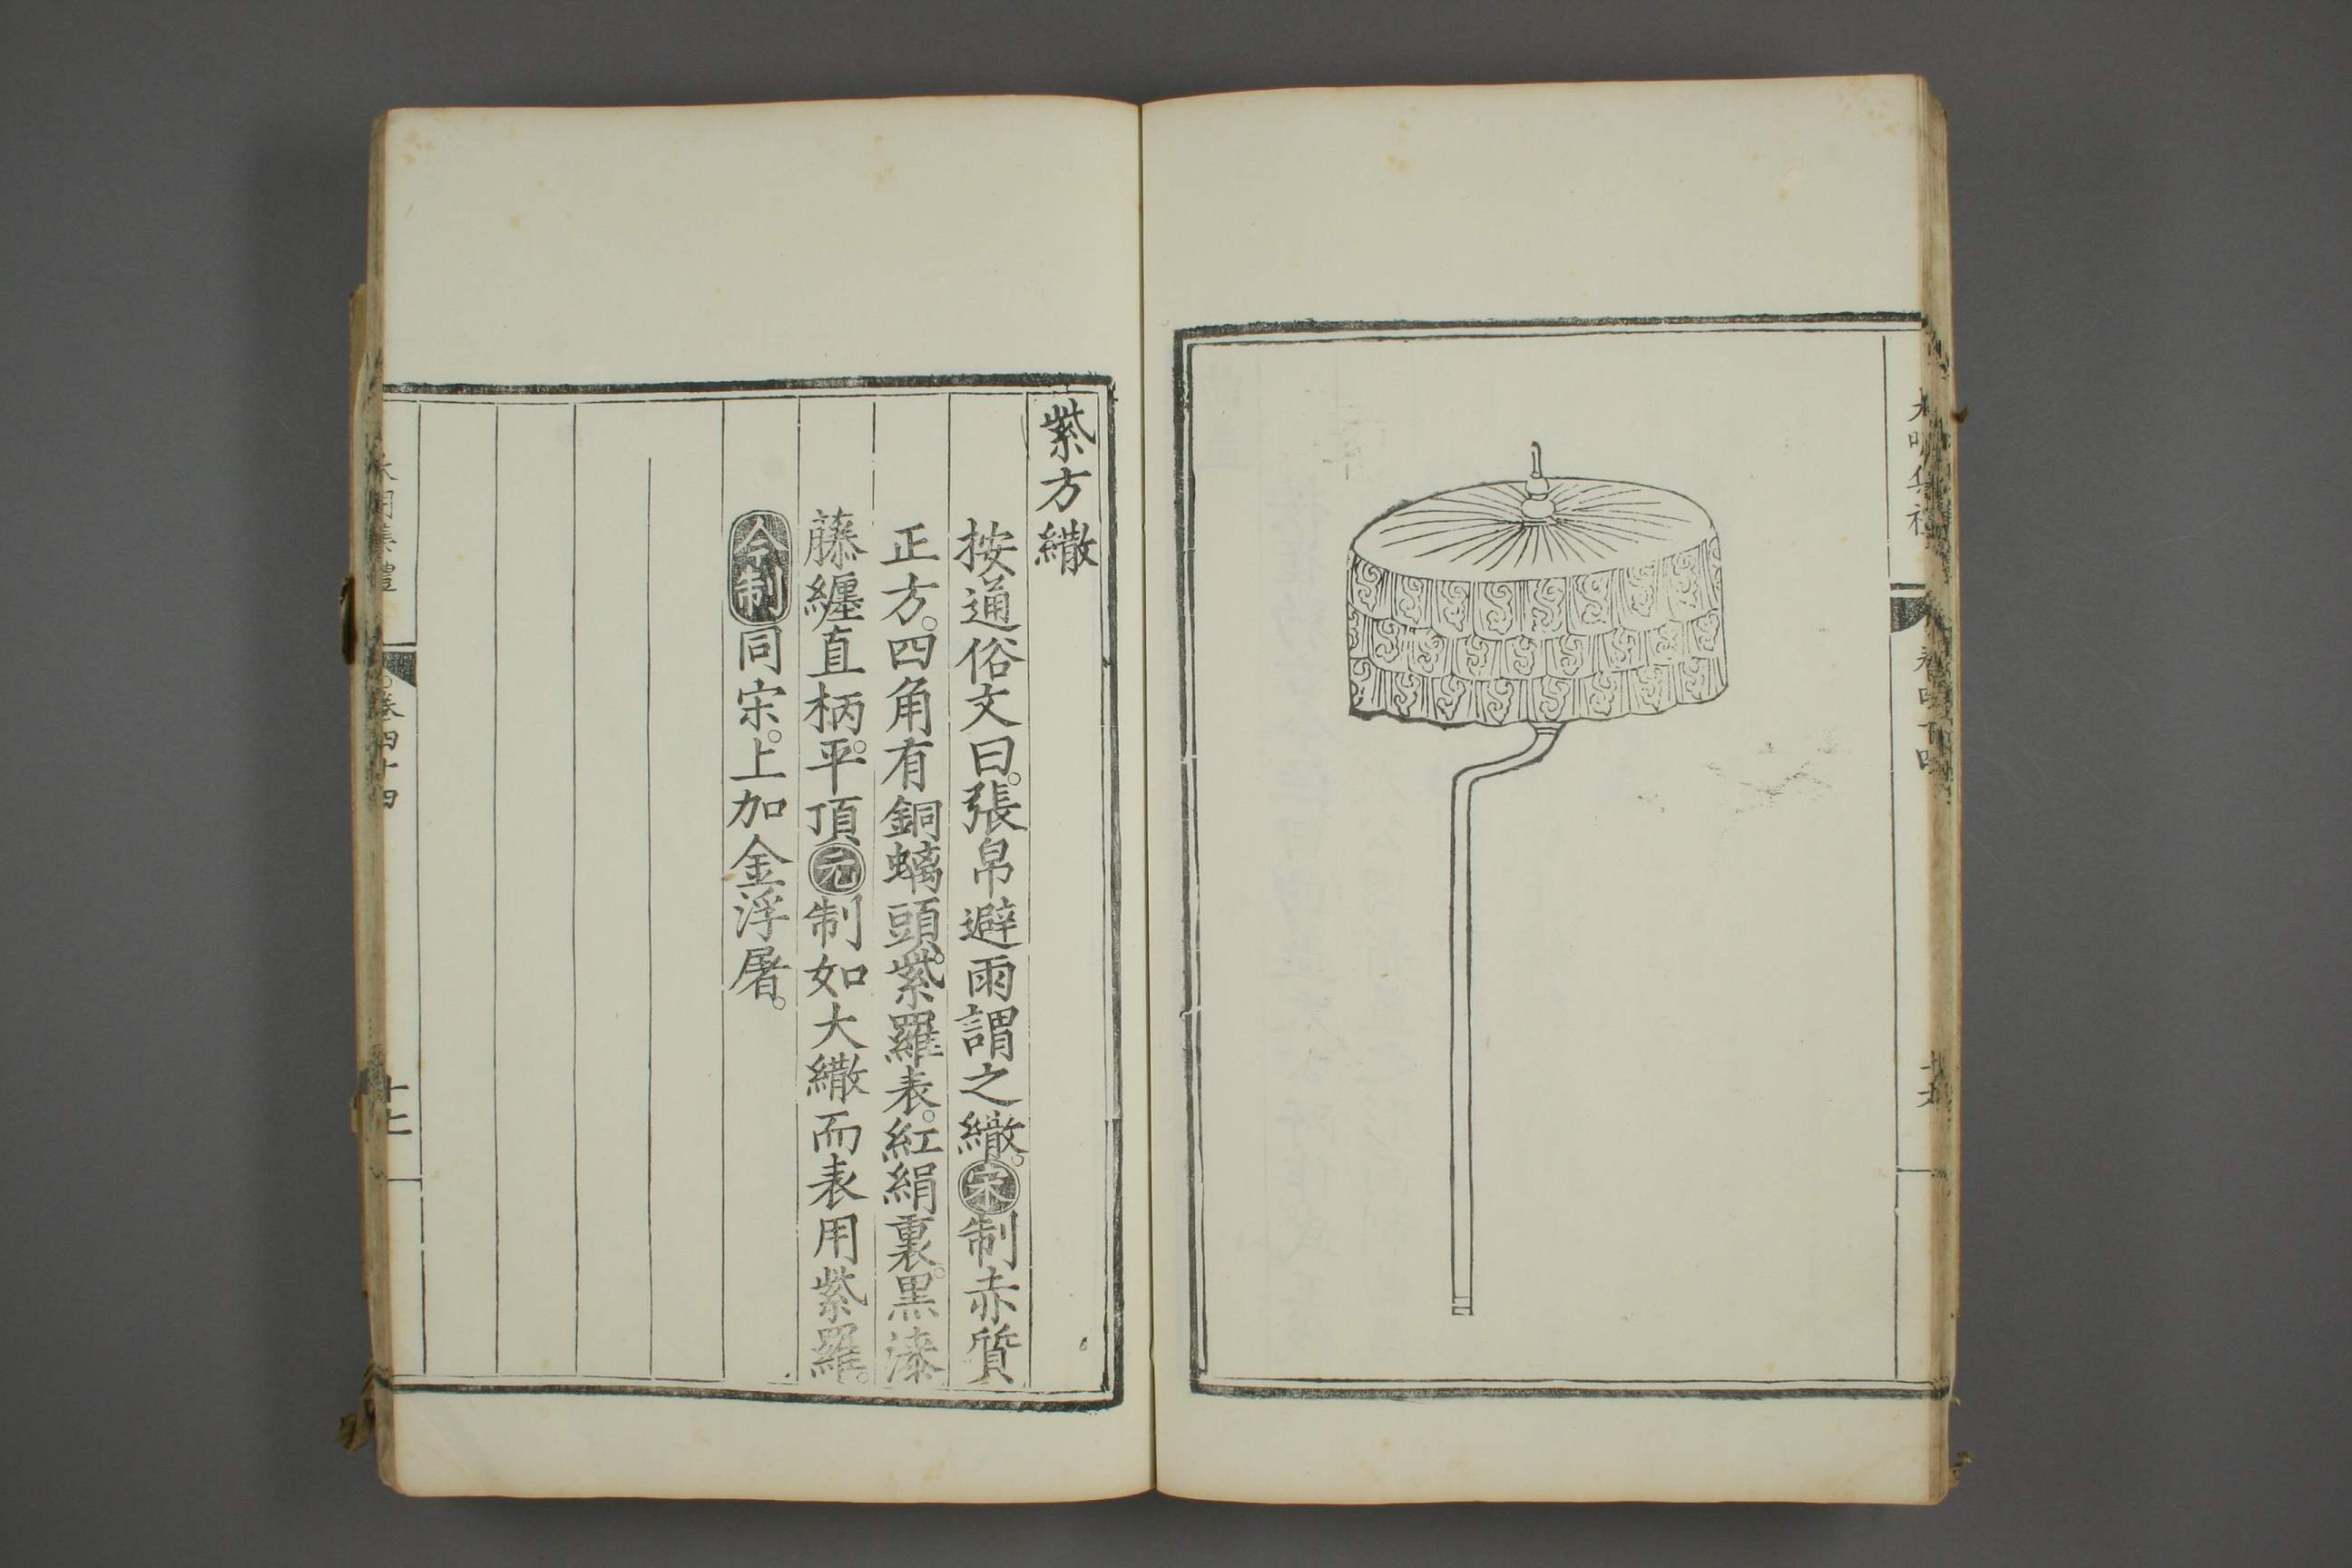 紫方繖
按通俗文曰。張帛避雨謂之繖。宋制赤質
正方。四角有銅螭頭。紫羅表。紅絹裏。黑漆
藤纏直柄。平頂元制如大繖而表用紫羅。
今制同宋。上加金浮屠。
大明集禮
卷四十四
十七